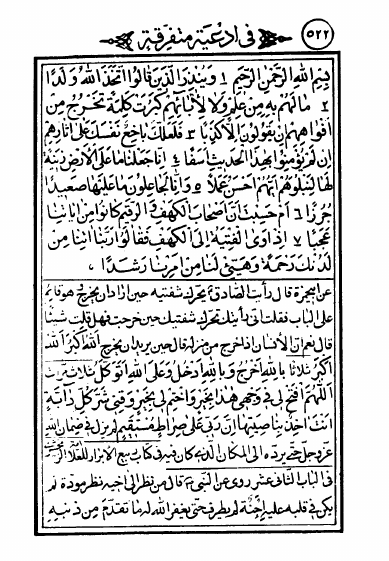 ٥٢٢ فى ادعية متفرقة
بسم الله الرحمن الرحيم ١ وينذر الذين قالوا اتخذ الله ولدا
٢ ما لهم به من علم ولا لآبائهم كبرت كلمة تخرج من
افواههم ان يقولون الا كذبا ٣ فلعلك باخع نفسك على اثارهم
ان لم يؤمنوا بهذا الحديث اسفا ٤ انا جعلنا ما على الارض زينة
لها لنبلوهم ايهم احسن عملا ٥ وانا لجاعلون ما عليها صعيدا
جرزا ٦ ام حسبت ان اصحاب الكهف والرقيم كانوا من اياتنا
عجبا ٧ اذ اوى الفتية الى الكهف فقالوا ربنا اتنا من
لدنك رحمة وهيئ لنا من امرنا رشدا ٨
قال رأيت الصادق يحرك شفتيه حين اراد ان يخرج وهو قائم
على الباب فقلت انى رأيتك تحرك شفتيك حين خرجت فهل قلت شيئا
قال نعم ان الانسان اذا خرج من منزله قال حين يريد ان يخرج الله اكبر الله
اكبر ثلاثا بالله اخرج وبالله ادخل وعلى الله اتوكل ثلاث مرات
اللهم افتح لى فى وجهى هذا بخير واختم لى بخير وقنى شر كل دابة
انت اخذ بناصيتها ان ربى على صراط مستقيم لم يزل فى ضمان الله
عز وجل حتى يرده الى المكان الذى كان فيه فى كتاب ربيع الابرار للعلامة
فى الباب الثانى عشر روى عن النبى قال من نظر الى اخيه نظر مودة لم
يكن فى قلبه عليه احنة لم يطرف حتى يغفر الله له ما تقدم من ذنبه